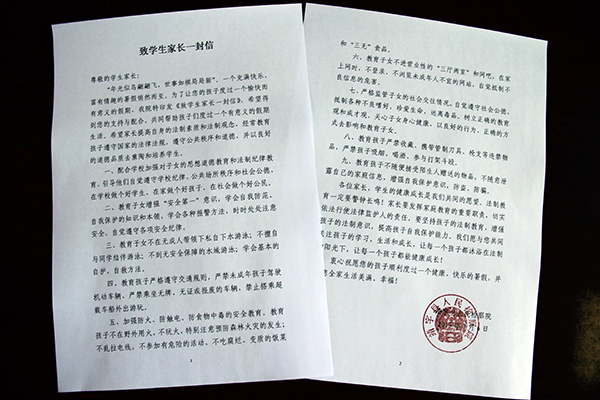 致学生家长一封信
尊敬的学生家长:
“年光似鸟翩翩飞,世事如棋局局新”。一个充满快乐,
富有情趣的暑假悄然而至。为了让您的孩子度过一个愉快而
有意义的假期,我院特印发《致学生家长一封信》,希望得
到您的支持与配合,共同帮助孩子们度过一个有意义的假期
生活。希望家长提高自身的法制素质和法制观念,经常教育
孩子遵守国家的法律法规,遵守公共秩序和道德,并以良好
的道德品质去熏陶和培养学生。
一、配合学校加强对子女的思想道德教育和法制纪律教
育,引导他们自觉遵守学校纪律、公共场所秩序和社会公德,
在学校做个好学生,在家做个好孩子,在社会做个好公民。
二、教育子女增强“安全第一”意识,学会自我防范、
自我保护的知识和本领,学会各种报警方法,时时处处注意
安全,自觉遵守各项安全纪律。
三、教育子女不在无成人带领下私自下水游泳;不擅自
与同学结伴游泳;不到无安全保障的水域游泳;学会基本的
自护、自救方法。
四、教育孩子严格遵守交通规则,严禁未成年孩子驾驶
机动车辆,严禁乘坐无牌、无证或报废的车辆,禁止搭乘超
载车船外出游玩。
五、加强防火、防触电、防食物中毒的安全教育。教育
孩子不在野外用火,不玩火,特别注意预防森林火灾的发生;
不乱拉电线,不参加有危险的活动,不吃腐烂、变质的饭菜
1
和“三无”食品。
六、教育子女不进营业性的“三厅两室”和网吧。在家
上网时,不登录、不浏览未成年人不宜的网站,自觉抵制不
良信息的危害。
七、严格监管子女的社会交往情况,自觉遵守社会公德,
抵制各种不良嗜好,珍爱生命,远离毒品。树立正确的教育
观和成才观,关心子女身心健康,以良好的行为、正确的方
式去影响和教育子女。
八、教育孩子严禁收藏、携带管制刀具、枪支等违禁物
品,严禁孩子吸烟、喝酒、参与打架斗殴。
九、教育孩子不随便接受陌生人赠送的物品,不随意泄
露自己的家庭信息,增强自我保护意识,防盗、防骗。
各位家长,学生的健康成长是我们共同的愿望,法制教
育一定要警钟长鸣!家长要发挥家庭教育的重要职责,切实
依法行使法律监护人的责任,要坚持孩子的法制教育,增强
孩子的法制意识,提高孩子自我保护能力。我们愿与您共同
关注孩子的学习、生活和成长,让每一个孩子都沐浴在法制
阳光下,让每一个孩子都能健康成长!
衷心祝愿您的孩子顺利度过一个健康、快乐的暑假,并
全家生活美满、幸福!
人民检察院
2